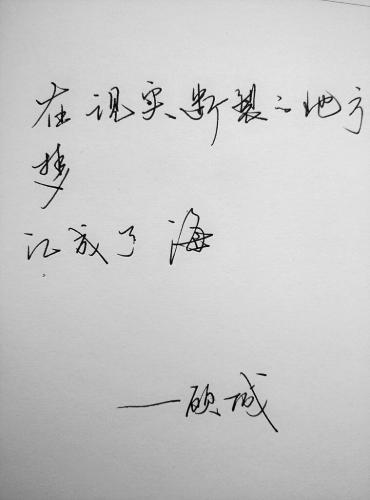 在现实断裂的地方
梦
汇成了海
——顾城